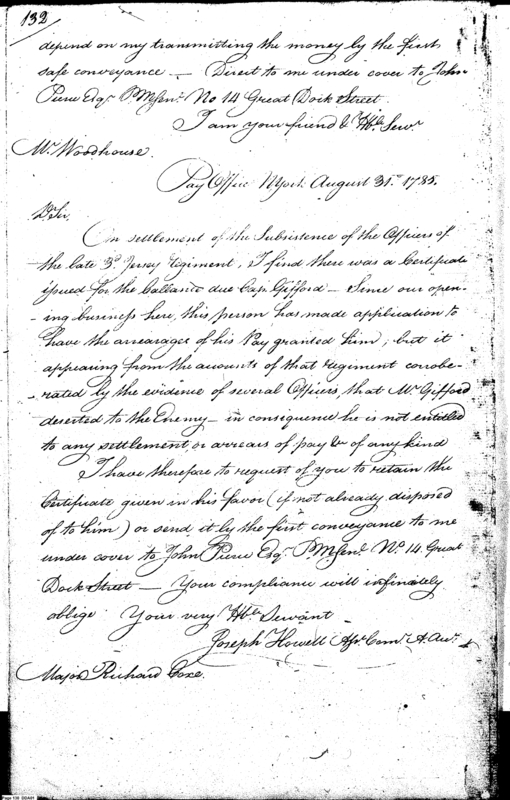 132
depend on my transmitting the money by the first
safe conveyance — Direct to me under cover to John
Pierce Esqr. PMGenl. No 14 Great Dock Street
I am your friend & Hble Servt
Mr. Woodhouse.
Pay Office NYork August 31st 1785.
Dr Sir,
On settlement of the Subsistence of the Officers of
the late 3d. Jersey regiment, I find there was a Certificate
issued for the Ballance due Capt. Gifford — Since our open-
-ing business here, this person has made application to
have the arrearages of his Pay granted him; but it
appearing from the accounts of that regiment corrobe-
-rated by the evidence of several Officers, that Mr. Gifford
deserted to the Enemy — in consequence he is not entitled
to any settlement, or arrears of pay &c of any kind
I have therefore to request of you to retain the
Certificate given in his favor (if not already disposed
of to him) or send it by the first conveyance to me
under cover to John Pierce Esqr. PMGenl. No. 14. Great
Dock Street — Your compliance will infinately
oblige Your very Hble Servant
Joseph Howell Asst. Comr. A. Accts.
Major Richard Coxe.